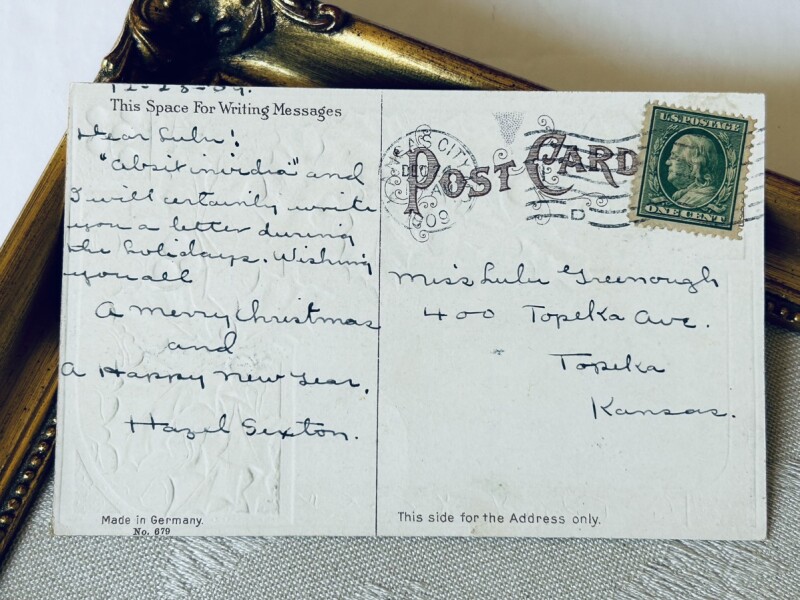 12-28-09.
This Space For Writing Messages
Dear Lulu!
"absit invidia" and
I will certainly write
you a letter during
the holidays. Wishing
you all
A merry Christmas
and
a Happy new Year.
Hazel Sexton.
Made in Germany.
No. 679
KANSAS CITY
DEC
A
09
D
POST CARD
U.S. POSTAGE
ONE CENT
Miss Lulu Greenough
400 Topeka Ave.
Topeka
Kansas.
This side for the Address only.